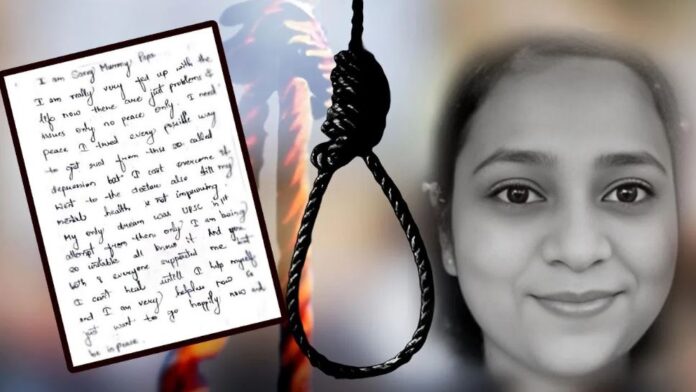 I am Sorry Mummy Papa
I am really very fed up with the
life now there are just problems &
issues only no peace only. I need
peace I tried every possible way
to get rid from this so called
depression but I can't overcome it
Went to the doctor also till my
mental health is not improving.
My only dream was UPSC in 1st
attempt from then only I am being
so unstable all knew it. And you
both & everyone supported me but
I can't heal untill I help myself
and I am very helpless now
just want to go happily now and
be in peace.